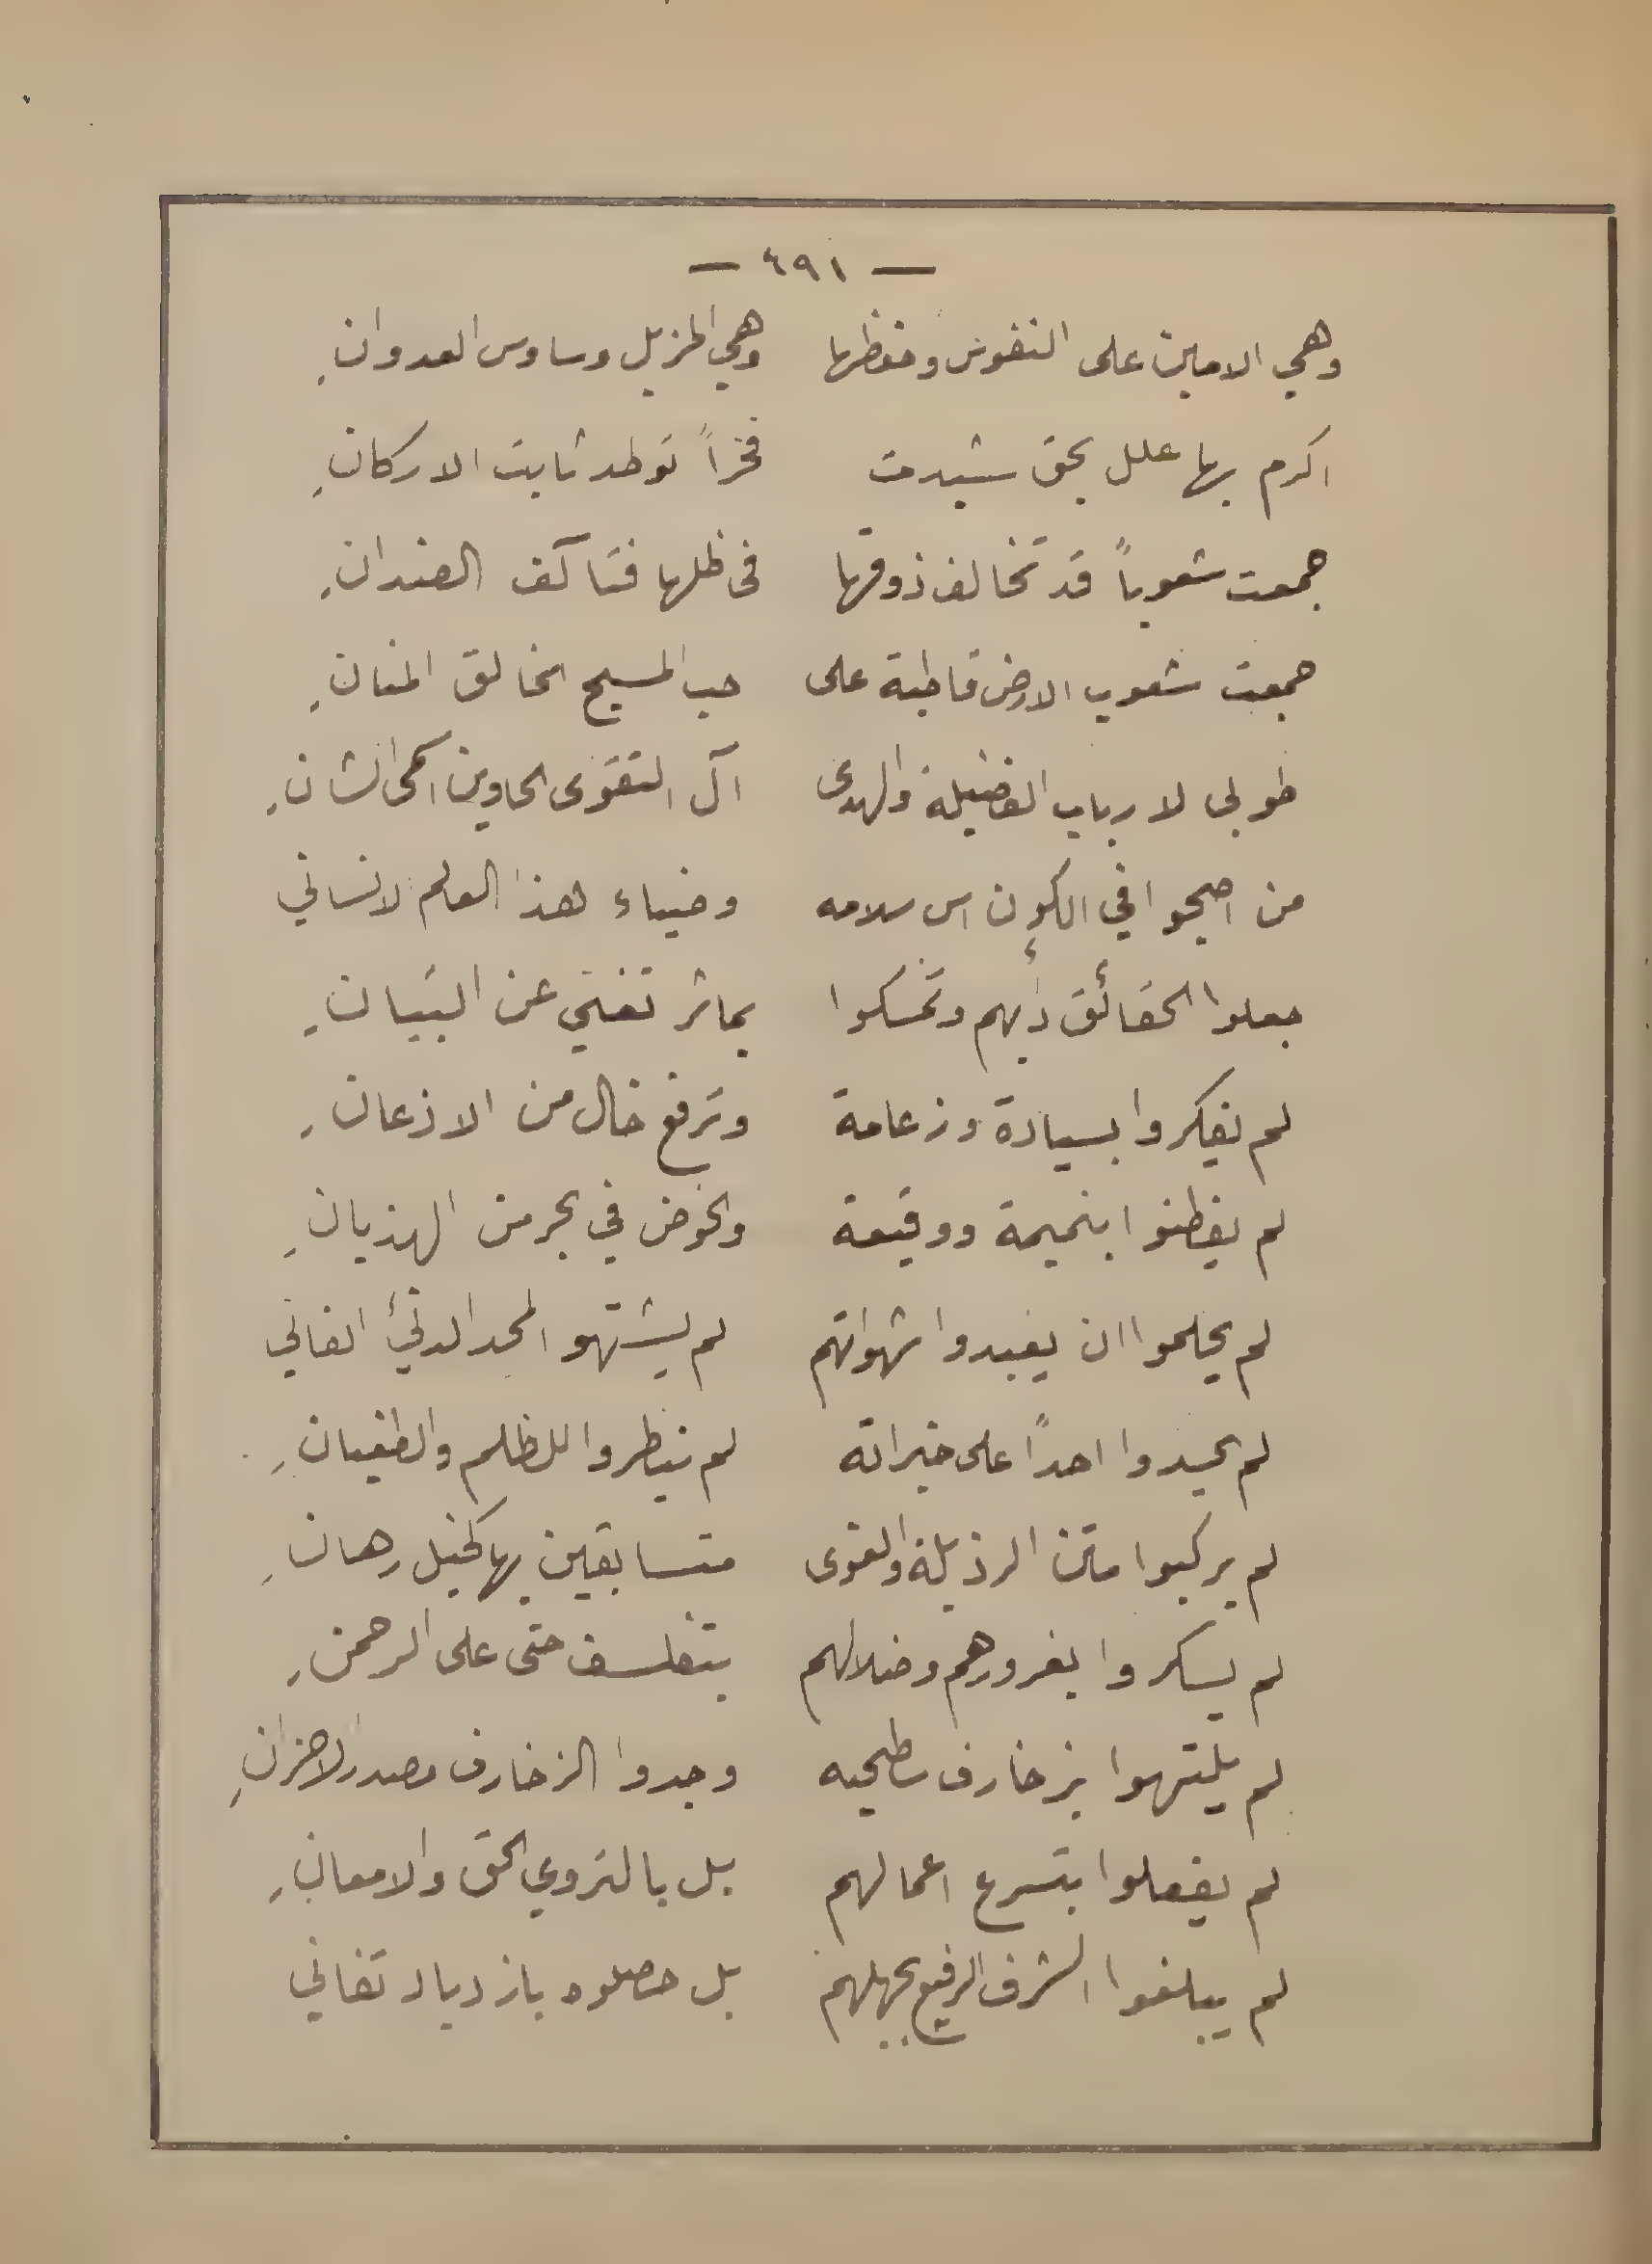 — ٤٩١ —
وهي الامين على النفوس وحفظها وهي المزيل وساوس العدوانِ
اكرم بها علل بحق شيدت فخراً توطد ثابت الاركانِ
جمعت شعوباً قد تخالف ذوقها في ظلها فتآلف الضدانِ
جمعت شعوب الارض قاطبة على حب المسيح الخالق المنانِ
طوبى لارباب الفضيلة والهدى آل التقوى الحاوين اسمى الشانِ
من اصبحوا في الكون اس سلامه وضياء هذا العالم لانساني
جعلوا الحقائق دأبهم وتمسكوا بماثر تغني عن التبيانِ
لم يفكروا بسيادة وزعامة وترفع خال من الاذعانِ
لم يفطنوا بنميمة ووقيعة والخوض في بحر من الهذيانِ
لم يحلموا ان يعبدوا شهواتهم لم يشتهو المجد الدنيء الفاني
لم يحسدوا احداً على خيراته لم ينظروا للظلم والطغيانِ
لم يركبوا متن الرذيلة والقوى متسابقين بها كخيل رهانِ
لم يسكروا بغرورهم وضلالهم بتفلسف حتى على الرحمنِ
لم يلتهوا بزخارف سطحيه وجدوا الزخارف مصدر الاحزانِ
لم يفعلوا بتسرع اعمالهم بل بالتروي الحق والامعانِ
لم يبلغوا الشرف الرفيع بجهلهم بل حصلوه بازدياد تفاني